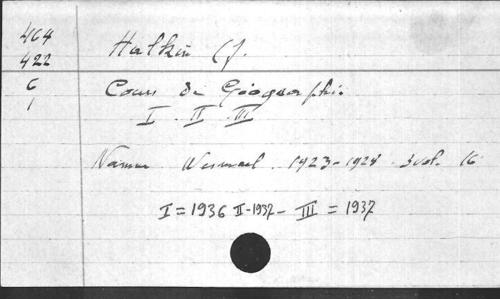 464
422 Halkin (J.
6
1 Cours de Géographie
I . II . III
Namur Wesmael . 1923-1924 . 3 vol. 16
I = 1936 II-1937 - III = 1937